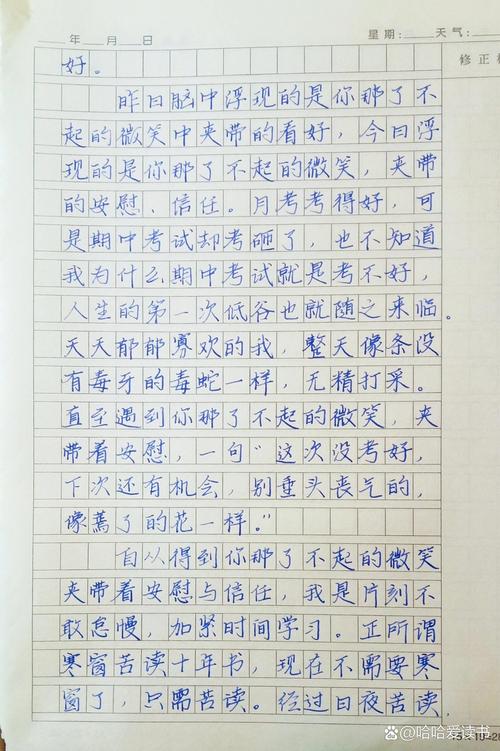 年 月 日 星期： 天气：
修正栏
好。
昨日脑中浮现的是你那了不
起的微笑中夹带的看好，今日浮
现的是你那了不起的微笑，夹带
的安慰、信任。月考考得好，可
是期中考试却考砸了，也不知道
我为什么期中考试就是考不好，
人生的第一次低谷也就随之来临。
天天郁郁寡欢的我，整天像条没
有毒牙的毒蛇一样，无精打采。
直至遇到你那了不起的微笑，夹
带着安慰，一句“这次没考好，
下次还有机会，别垂头丧气的，
像蔫了的花一样。”
自从得到你那了不起的微笑
夹带着安慰与信任，我是片刻不
敢怠慢，加紧时间学习。正所谓
寒窗苦读十年书，现在不需要寒
窗了，只需苦读。经过日夜苦读，
@哈哈爱读书